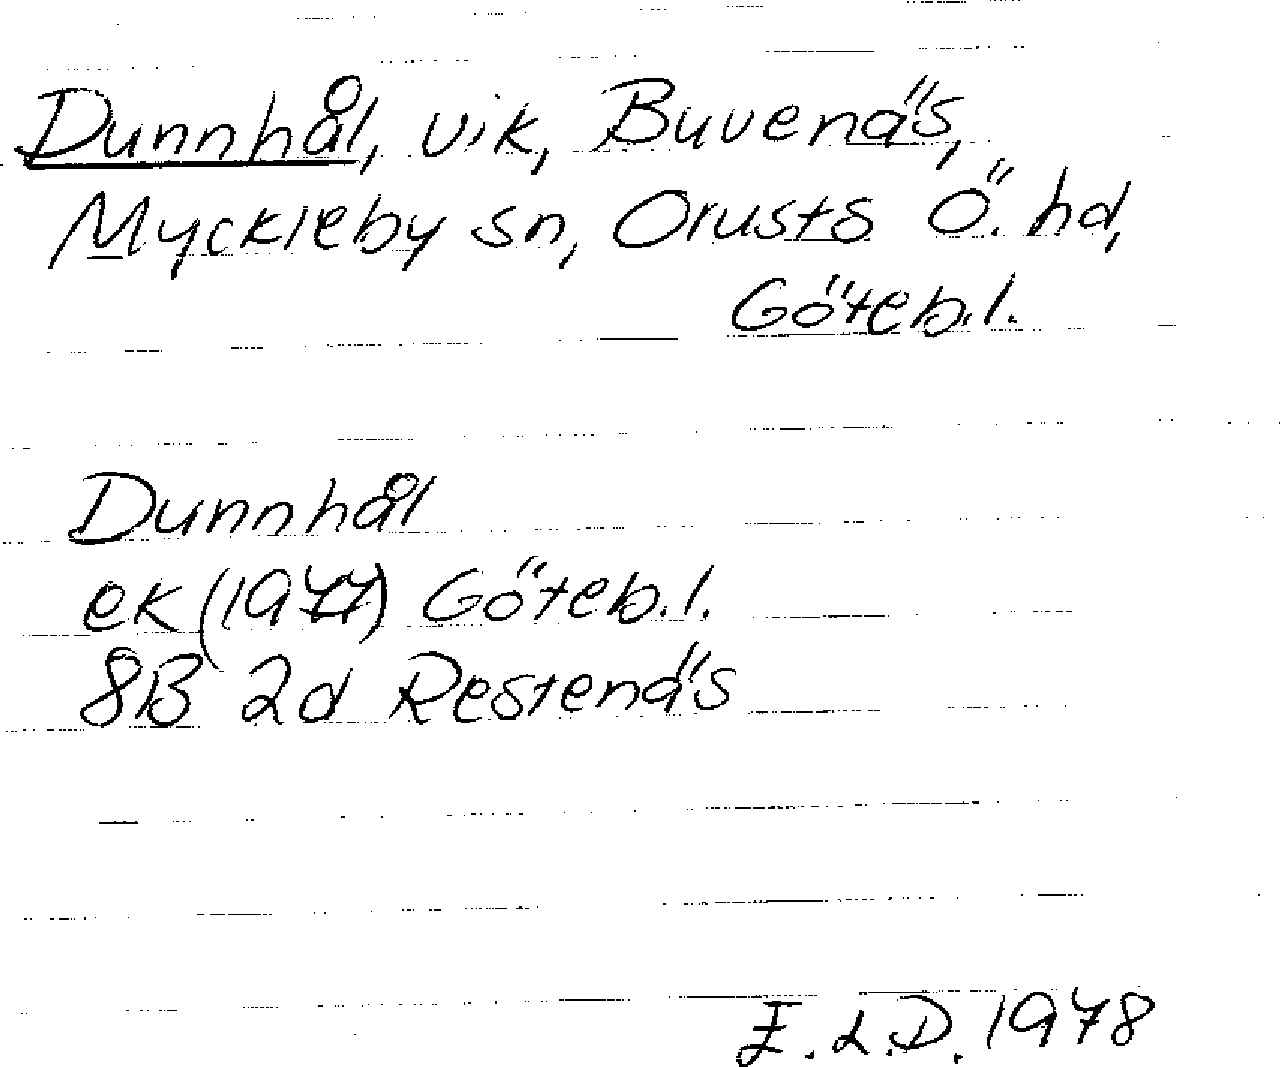 Dunnhål, vik, Buvenäs,
Myckleby sn, Orusts Ö. hd,
Göteb.l.
Dunnhål
ek (1977) Göteb.l.
8B 2d Restenäs
E.L.D. 1978